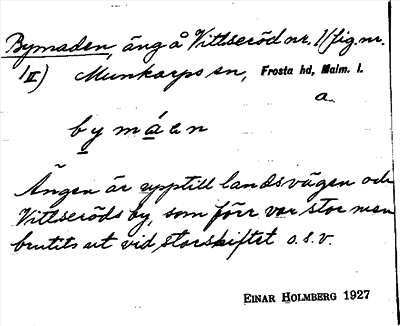 Bymaden, äng å Vittseröd nr. 1/fig. nr.
1 II) Munkarps sn, Frosta hd, Malm. l.
a.
bymáen
Ängen är upptill landsvägen och
Vittseröds by, som förr var stor men
brutits ut vid storskiftet o.s.v.
EINAR HOLMBERG 1927